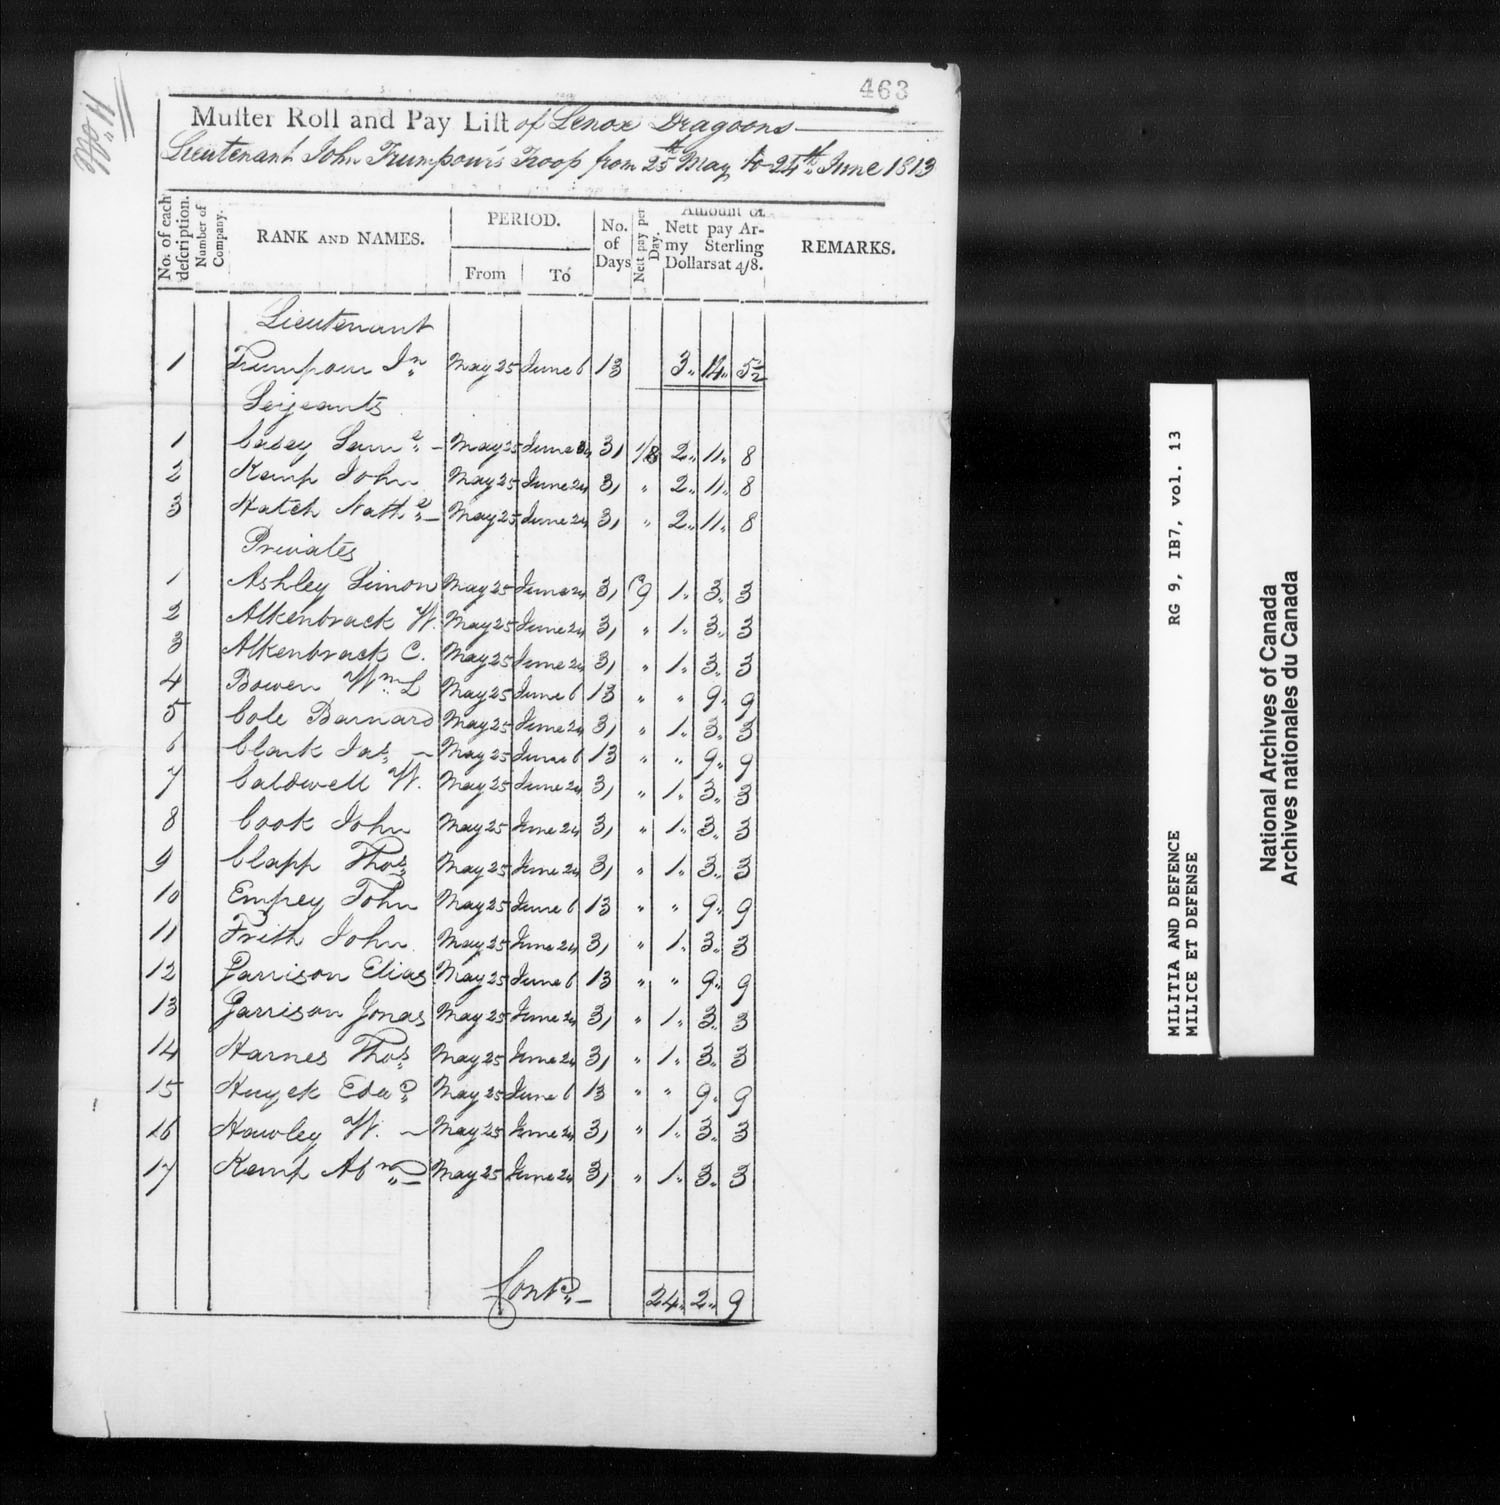 463
No. 11
Muster Roll and Pay List of Lenox Dragoons
Lieutenant John Trumpour's Troop from 25th May to 24th June 1813
No. of each description. Number of Company. RANK AND NAMES. PERIOD. From To No. of Days Nett pay per Day. Amount of Nett pay Army Sterling Dollars at 4/8. REMARKS.
Lieutenant
1 Trumpour Jn. May 25 June 6 13 3 14 5½
Serjeants
1 Casey Saml. May 25 June 24 31 1/8 2 11 8
2 Kemp John May 25 June 24 31 " 2 11 8
3 Hatch Nathl. May 25 June 24 31 " 2 11 8
Privates
1 Ashley Simon May 25 June 24 31 9 1 3 3
2 Alkenbrack W. May 25 June 24 31 " 1 3 3
3 Alkenbrack C. May 25 June 24 31 " 1 3 3
4 Bowen Wm. L May 25 June 6 13 " " 9 9
5 Cole Barnard May 25 June 24 31 " 1 3 3
6 Clark Jas. May 25 June 6 13 " " 9 9
7 Caldwell W. May 25 June 24 31 " 1 3 3
8 Cook John May 25 June 24 31 " 1 3 3
9 Clapp Thos. May 25 June 24 31 " 1 3 3
10 Empey John May 25 June 6 13 " " 9 9
11 Frith John May 25 June 24 31 " 1 3 3
12 Garrison Elias May 25 June 6 13 " " 9 9
13 Garrison Jonas May 25 June 24 31 " 1 3 3
14 Harnes Thos. May 25 June 24 31 " 1 3 3
15 Huyck Edwd. May 25 June 6 13 " " 9 9
16 Hawley W. May 25 June 24 31 " 1 3 3
17 Kemp Abm. May 25 June 24 31 " 1 3 3
Contd. 24 2 9
MILITIA AND DEFENCE RG 9, IB7, vol. 13
MILICE ET DEFENSE
National Archives of Canada
Archives nationales du Canada